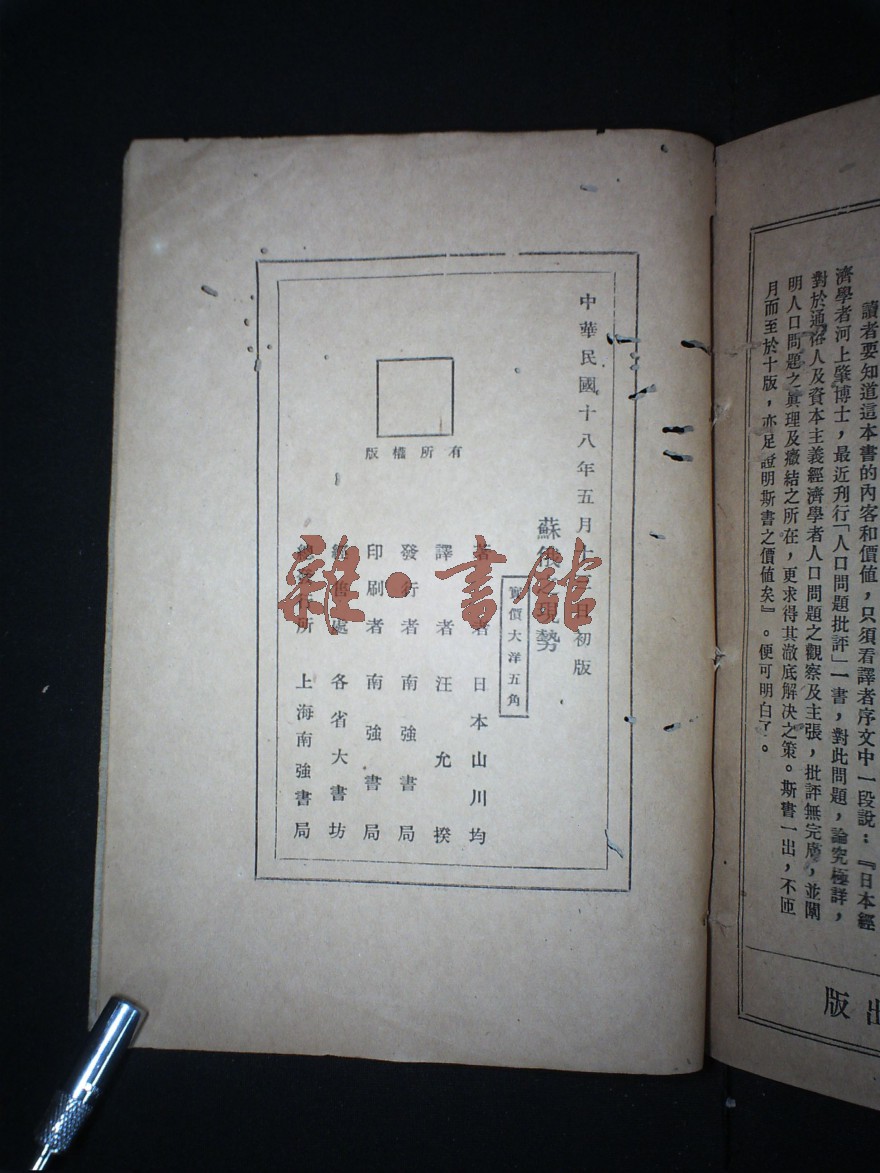 讀者要知道這本書的內容和價値，只須看譯者序文中一段說：『日本經
濟學者河上肇博士，最近刋行「人口問題批評」一書，對此問題，論究極詳，
對於通俗人及資本主義經濟學者人口問題之觀察及主張，批評無完膚，並闡
明人口問題之眞理及癥結之所在，更求得其澈底解決之策。斯書一出，不匝
月而至於十版，亦足證明斯書之價値矣』。便可明白了。
出版
中華民國十八年五月十日初版
蘇俄之現勢
實價大洋五角
著者 日本山川均
譯者 汪允揆
發行者 南強書局
印刷者 南強書局
經售處 各省大書坊
總發行所 上海南強書局
版權所有
雜·書館